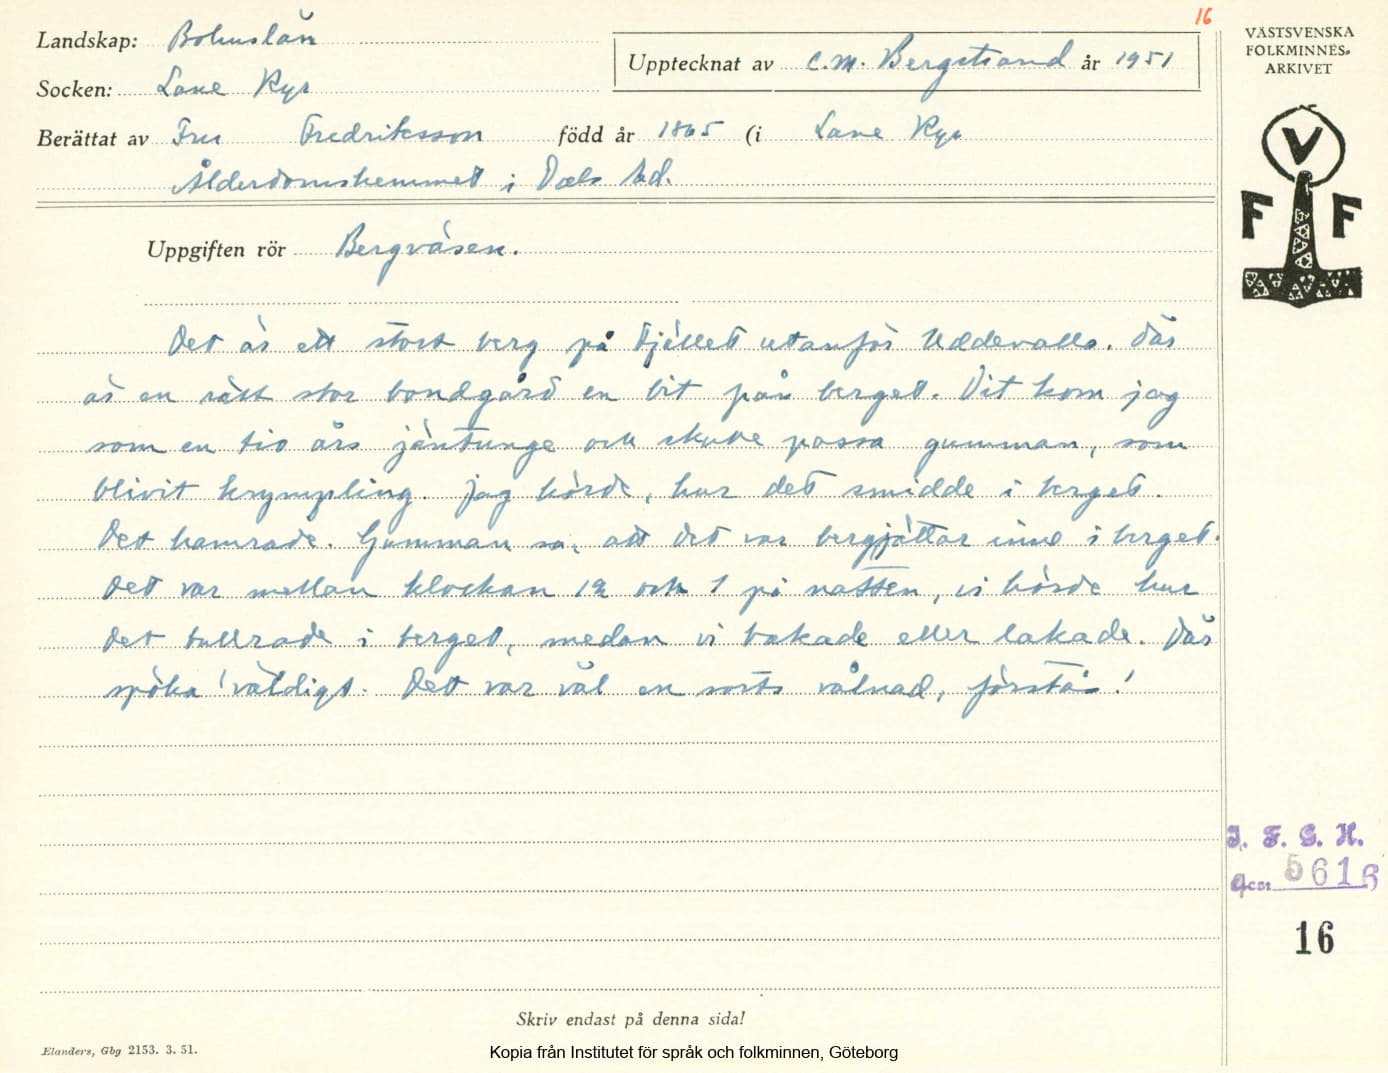 16
Landskap: Bohuslän
Upptecknat av C.M. Bergstrand år 1951
Socken: Lane Ryr
Berättat av Fru Fredriksson född år 1865 (i Lane Ryr
Ålderdomshemmet i Dals Ed.
Uppgiften rör Bergväsen.
Det är ett stort berg på Fjället utanför Uddevalla. Där
är en rätt stor bondgård en bit från berget. Dit kom jag
som en tio års jäntunge och skulle passa gumman, som
blivit krympling. Jag hörde, hur det smidde i berget.
Det hamrade. Gumman sa, att det var bergjättar inne i berget.
Det var mellan klockan 12 och 1 på natten, vi hörde hur
det bullrade i berget, medan vi bakade eller lakade. Där
spöka' väldigt. Det var väl en sorts vålnad, förstår!
VÄSTSVENSKA
FOLKMINNES-
ARKIVET
V
F F
I. F. G. H.
Acc: 5616
16
Skriv endast på denna sida!
Elanders, Gbg 2153. 3. 51.
Kopia från Institutet för språk och folkminnen, Göteborg